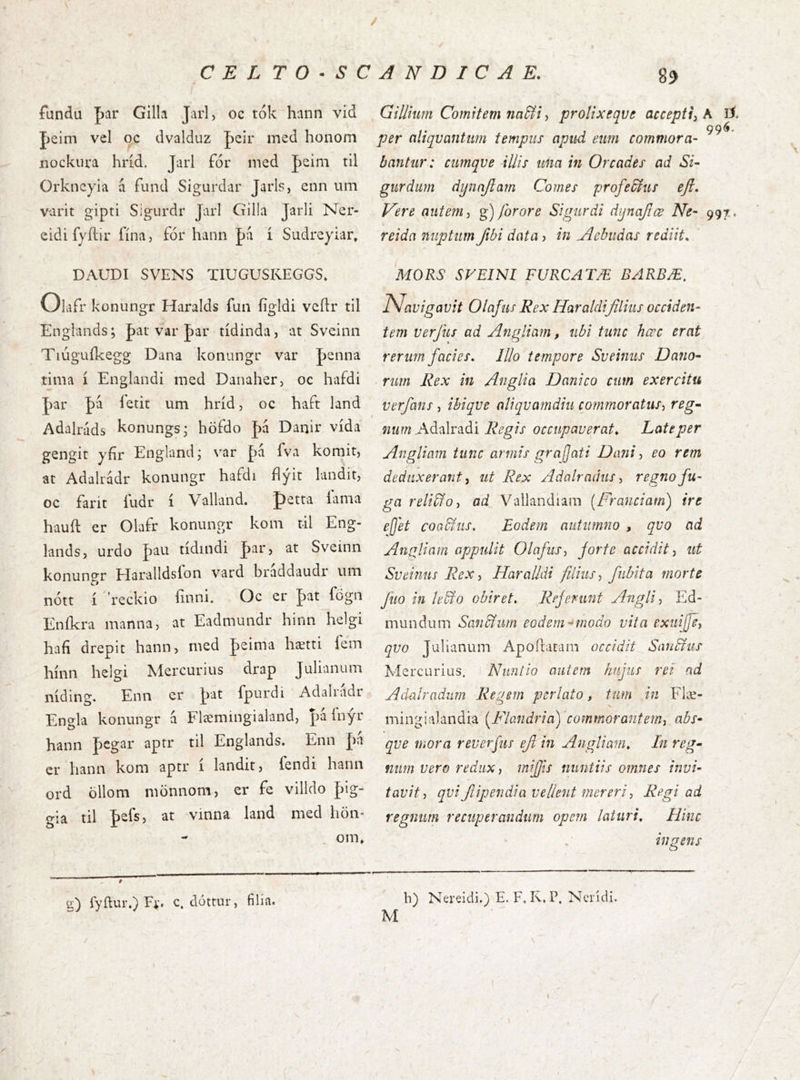 CELTO-SCANDICAE. 89
fundu þar Gilla Jarl, oc tók hann vid
þeim vel oc dvalduz þeir med honom
nockura hríd. Jarl fór med þeim til
Orkneyia á fund Sigurdar Jarls, enn um
varit gipti Sigurdr Jarl Gilla Jarli Ner-
eidi ſyſtir ſína, fór hann þá í Sudreyiar.
DAUDI SVENS TIUGUSKEGGS.
Olafr konungr Haralds ſun ſigldi veſtr til
Englands; þat var þar tídinda, at Sveinn
Tiúguſkegg Dana konungr var þenna
tima í Englandi med Danaher, oc hafdi
þar þá ſetit um hríd, oc haft land
Adalráds konungs; höfdo þá Danir vída
gengit yfir England; var þá ſva komit,
at Adalrádr konungr hafdi flýit landit,
oc farit ſudr í Valland. Þetta ſama
hauſt er Olafr konungr kom til Eng-
lands, urdo þau tídindi þar, at Sveinn
konungr Haralldsſon vard bráddaudr um
nótt í reckio ſinni. Oc er þat ſögn
Enſkra manna, at Eadmundr hinn helgi
hafi drepit hann, med þeima hætti ſem
hínn helgi Mercurius drap Julianum
níding. Enn er þat ſpurdi Adalrádr
Engla konungr á Flæmingialand, þá ſnýr
hann þegar aptr til Englands. Enn þá
er hann kom aptr í landit, ſendi hann
ord öllom mönnom, er fe villdo þig-
gia til þeſs, at vinna land med hön-
om.
g) ſyſtur.) Fr. c. dóttur, filia.
Gillium Comitem nacti, prolixeqve accepti, A D. 996.
per aliqvantum tempus apud eum commora-
bantur: cumqve illis una in Orcades ad Si-
gurdum dynaſtam Comes profectus eſt.
Vere autem, g) ſorore Sigurdi dynaſtæ Ne- 997.
reida nuptum ſibi data, in Aebudas rediit.
MORS SVEINI FURCATÆ BARBÆ.
Navigavit Olafus Rex Haraldi filius occiden-
tem verſus ad Angliam, ubi tunc hæc erat
rerum facies. Illo tempore Sveinus Dano-
rum Rex in Anglia Danico cum exercitu
verſans, ibiqve aliqvamdiu commoratus, reg-
num Adalradi Regis occupaverat. Late per
Angliam tunc armis graſſati Dani, eo rem
deduxerant, ut Rex Adalradus, regno fu-
ga relicto, ad Vallandiam (Franciam) ire
eſſet coactus. Eodem autumno, qvo ad
Angliam appulit Olafus, forte accidit, ut
Sveinus Rex, Haralldi filius, ſubita morte
ſuo in lecto obiret. Referunt Angli, Ed-
mundum Sanctum eodem modo vita exuiſſe,
qvo Julianum Apoſtatam occidit Sanctus
Mercurius. Nuntio autem hujus rei ad
Adalradum Regem perlato, tum in Flæ-
mingialandia (Flandria) commorantem, abs-
qve mora reverſus eſt in Angliam. In reg-
num vero redux, miſſis nuntiis omnes invi-
tavit, qvi ſtipendia vellent mereri, Regi ad
regnum recuperandum opem laturi. Hinc
ingens
h) Nereidi.) E. F. K. P. Nerídi.
M